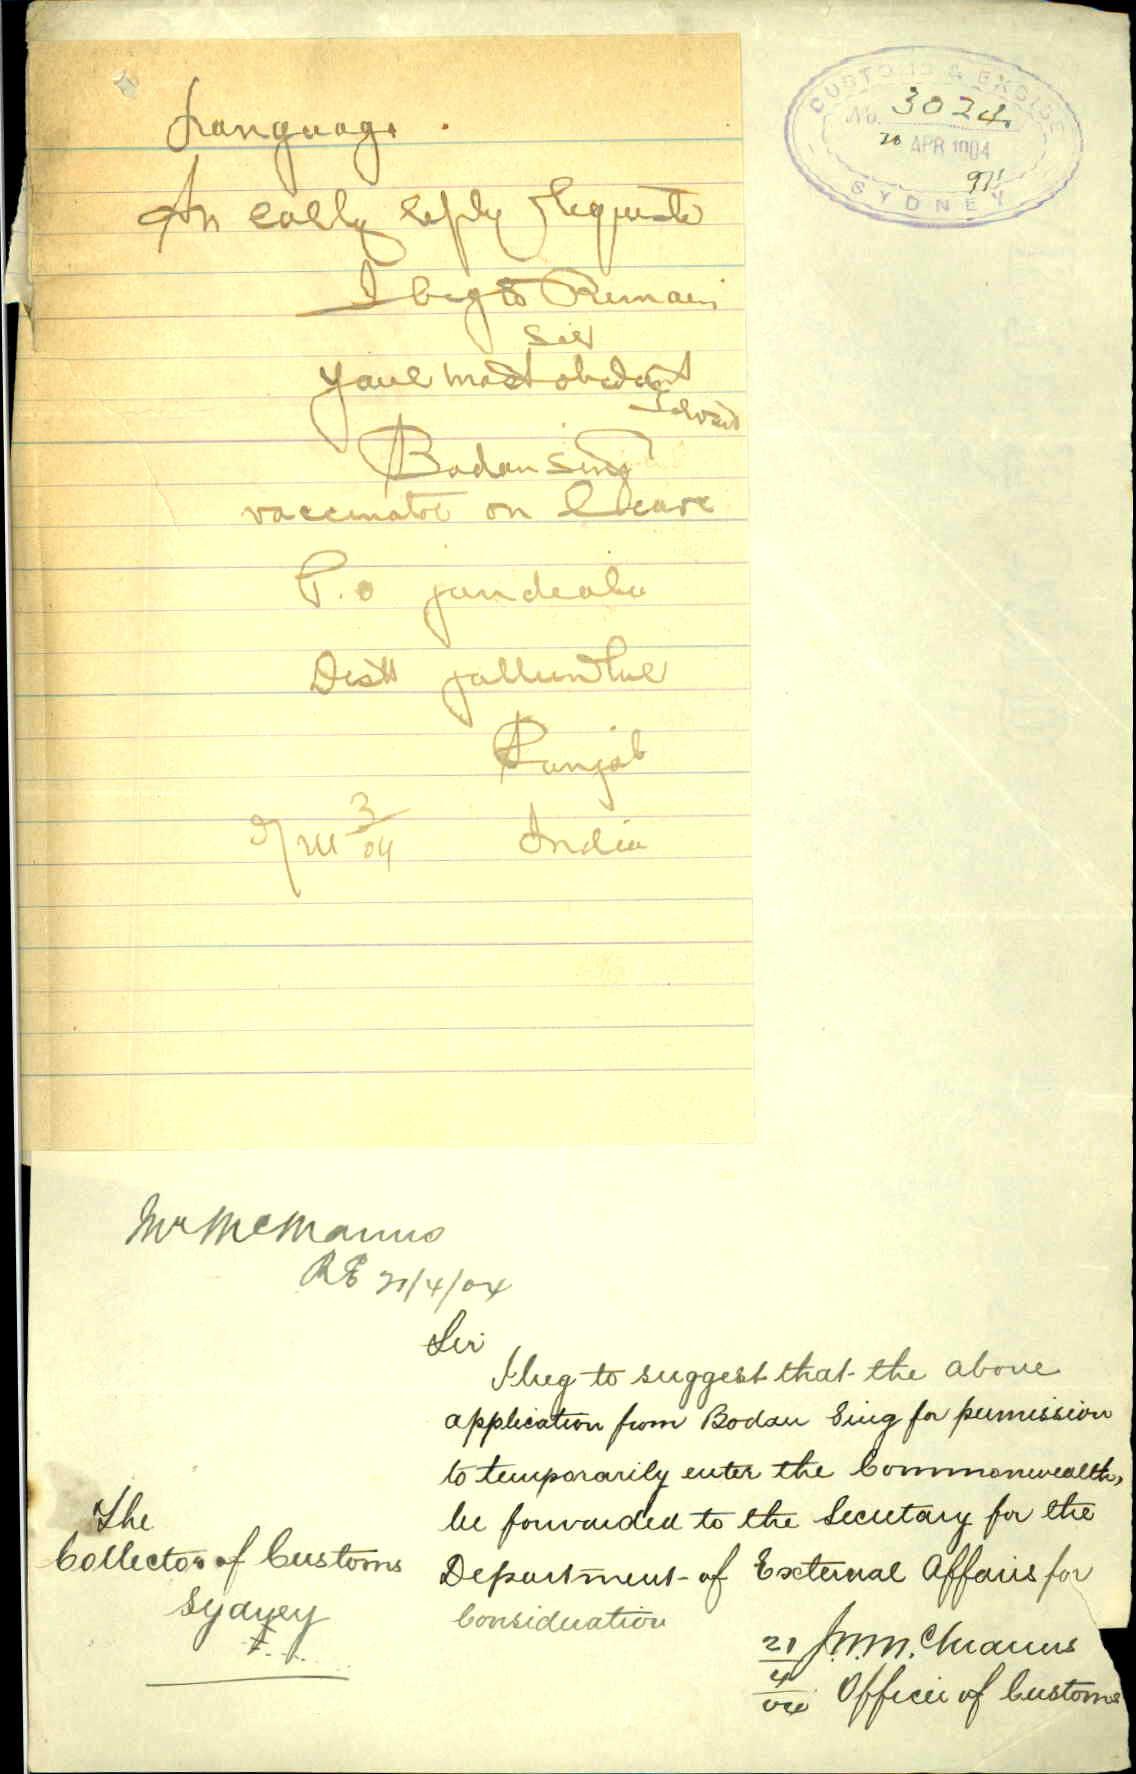 CUSTOMS & EXCISE
No. 3024
20 APR 1904
SYDNEY
Language.
An early reply Requeste
I beg to Remain
Sir
your most obedent
Servant
Bodan Sing
vaccinator on leave
P.O jandeala
Distt jallundhur
Punjab
3/04 India
Mr McManus
21/4/04
Sir
I beg to suggest that the above
application from Bodan Sing for permission
to temporarily enter the Commonwealth,
be forwarded to the Secretary for the
Department of External Affairs for
Consideration
The
Collector of Customs
Sydney
21/4/04 J.M.McManus
Officer of Customs